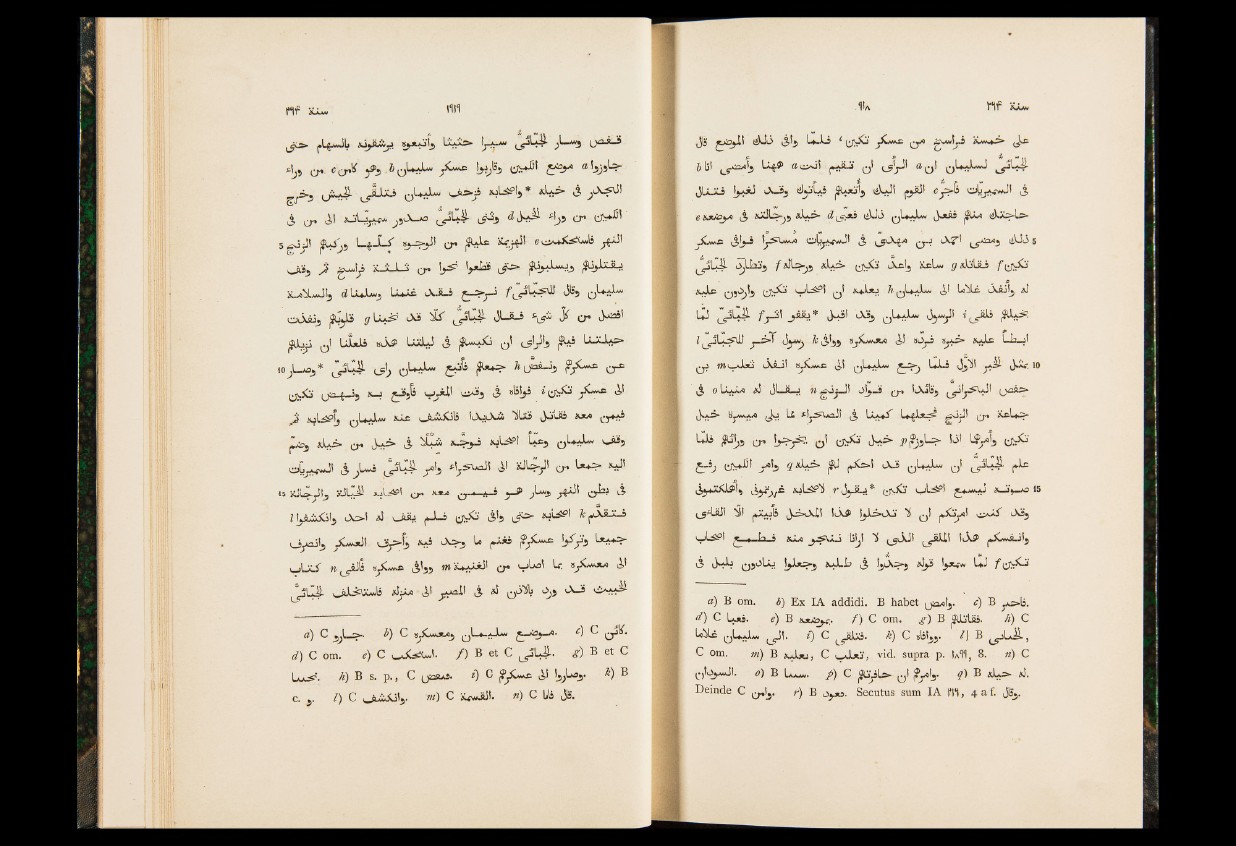 سنة ٢٦٤
١٩١٨
على خمسة فراسخ من عسكر تكين، فلمّا وافى ذلك الموضع قال
الجبّائىّ لسليمان ان a الرأى ان تقيم انت a ههنا وأمضى انا b
فى السميريّات فأجرّ c القوم اليك وأتعبهم فيأتوك وقد لغبوا فتنال
حاجتك منهم ففعل سليمان ذلك فعبّى d خيله ورجّالته فى موضعه e
ذلك ومضى احمد بن مهدىّ فى السميريّات مُسْحِرًا فوافى عسكر 5
تكين f فقاتله g ساعة واعدّ تكين خيله ورجاله f وتطارد الجبّائىّ
له وأنفذ غلاما الى سليمان h يعلمه ان اصحاب تكين واردون عليه
بخيلهم فلقى i الرسول سليمان وقد اقبل *يقفو اثر f الجبّائىّ لمّا
ابطأ عليه خبره فردّه الى معسكره ووافى k رسول آخر للجبّائىّ l
بمثل الخبر الأوّل فلمّا رجع سليمان الى عسكره انفذ ثعلب m بن 10
حفص البحرانىّ وقائدا من قوّاد الزنج n يقال له منينا o فى
جماعة من الزنج فجعلهما كمينا فى الصحراء ممّا يلى ميسرة خيل
تكين وأمرهما اذا جاوزهم p خيل تكين ان يخرجوا من ورائهم فلمّا
علم الجبّائىّ ان سليمان قد احكم لهم خيله q وامر الكمين رفع
صوته ليسمع اصحاب تكين *يقول r لاصحابه غررتمونى وأهلكتمونى 15
وقد كنت امرتكم ان لا تدخلوا هذا المدخل فأبيتم الّا القاءى
وانفسكم هذا الملقى الذى لا ارانا ننجو منه فطمع اصحاب
تكين f لمّا سمعوا قوله وجدّوا فى طلبه وجعلوا ينادون بلبل فى
a) B om. b) Ex IA addidi. B habet وامض. c) B فاحمر.
d) C فعبا. e) B بموضعه. f) C om. g) B فقاتلهم. h) C
الى سليمان غلاما. i) C فتلقى. k) C ووافاه. l) B الحبانى,
C om. m) B بعلبه, C تعلب, vid. supra p. ١٨٩٩, 8. n) C
السودان. o) B سسا. p) C وامرهم ان حافرتهم. q) B له خيله.
Deinde C وامن. r) B دعود. Secutus sum IA ٢٢٩, 4 a f. وقال.
سنة ٢٦٤
١٩١٩
قفص وسار الجبّائىّ سيرا حثيثا وأتبعوه يرشقونه بالسهام حتى
جاوزوا a موضع الكمين وقاربوا عسكر سليمان b وهو كامن c من وراء
الجدر فى خيله *واصحابه فزحف سليمان فتلقّى الجيش وخرج
الكمين من وراء الخيل d وثنى الجبّائىّ صدور سميريّاته الى من فى
النهر فاستحكمت e الهزيمة عليهم من الوجوه كلّها وركبهم الزنج 5
يقتلونهم ويسلبونهم حتى قطعوا نحوا من ثلثة فراسخ ثم وقف
سليمان وقال للجبّائىّ f نرجع فقد غنمنا وسلمنا d والسلامة
افضل من كلّ شىء فقال الجبّائىّ كلّا قد نخبنا g قلوبهم ونفذت
حيلتنا فيهم والراى ان نكبسهم فى ليلتنا هذه فلعلّنا ان نزيلهم
عن عسكرهم ونفضّ h جمعهم فأتبع سليمان راى الجبّائىّ *وصار 10
الى عسكر تكين i فوافاه فى وقت المغرب فأوقع به ونهض تكين
فيمن معه فقاتل قتالا شديدا فانكشف عنه سليمان وأصحابه ثم
وقف سليمان وعبّأ اصحابه فوجّه شِبْلًا فى خيل من خيله وضمّ
اليه جمعا من الرجّالة الى الصحراء وامر الجبّائىّ فسار فى السميريّات
فى بطن النهر وسار هو فيمن معه من اصحابه الخيّالة والرجّالة 15
فتقدّم k اصحابه حتى وافى تكين فلم يقف له احد وانكشفوا l
جميعا وتركوا عسكرهم فغنم ما وجد فيه وأحرق العسكر وانصرف
الى معسكره بما اصاب من الغنيمة m ووافى عسكره فألفى n كتاب
الخبيث قد ورد بالاذن له فى المصير الى منزله فاستخلف الجبّائىّ
a) C جازو. b) C موضع سليمان ومعسكره. c) C كائن.
d) C om. e) C استحكت. f) B et C الجبائى. g) B et C
نحبنا. h) B s. p., C فنقض. i) C وصاروا الى عسكرهم. k) B
c. و. l) C وانكشف. m) C القسمة. n) C قال فاذا.